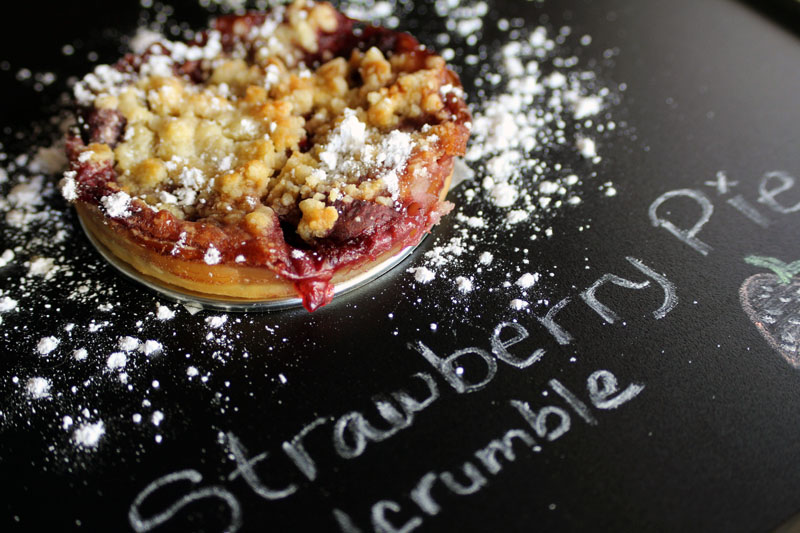 Strawberry Pie
crumble